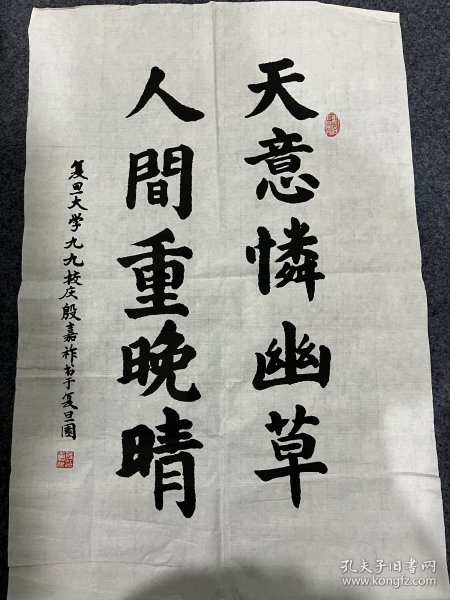 天意憐幽草
人間重晚晴
复旦大学九九校庆殷嘉祚书于复旦园
孔夫子旧书网
www.kongfz.com